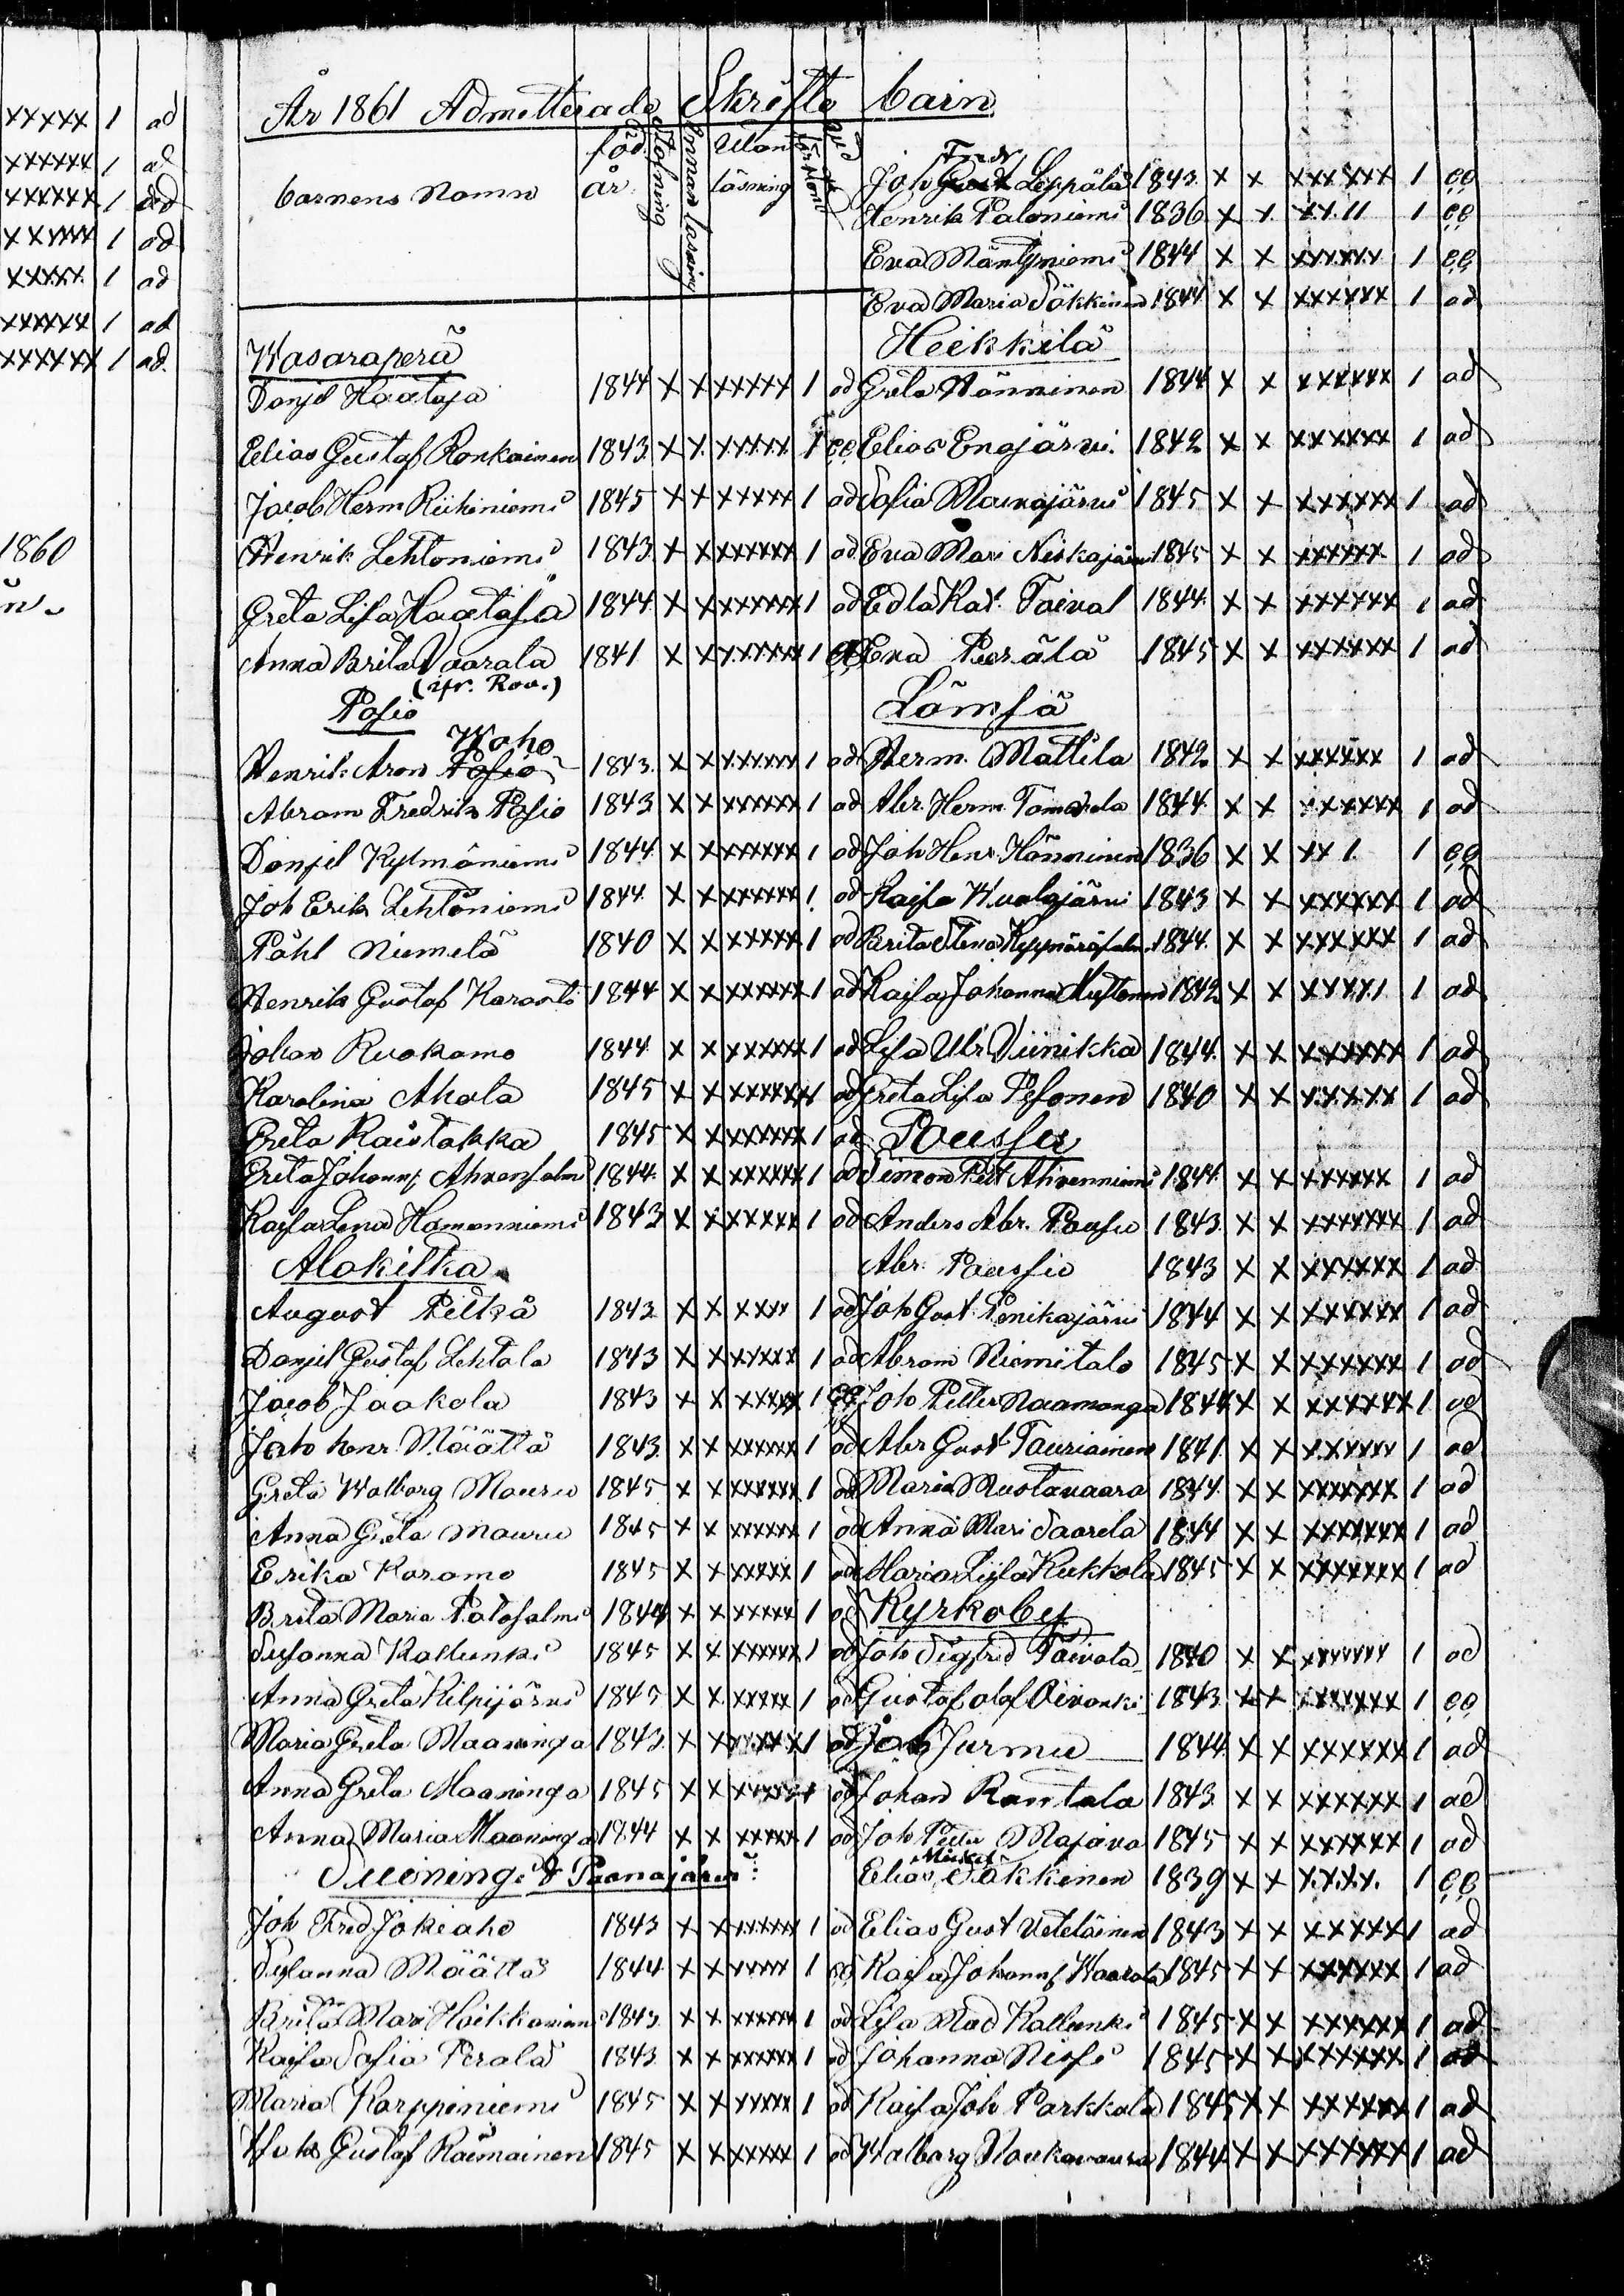 År 1861 Admitterade Skrifte barn
barnens Namn föd. år Stafning Innan läsning Utan läsning
Wasaraperä
Danjel Haataja 1844 x x xxxxx 1 ad
Elias Gustaf Ronkainen 1843 x x xxxxx 1 ee
Jacob Herm Riikiniemi 1845 x x xxxxx 1 ad
Henrik Lehtoniemi 1843 x xxxxxxx 1 ad
Greta Lisa Haataja 1844 x xxxxxxx 1 ad
Anna Brita Vaarala 1841 x xxxxxxx 1
(ifr. Rov.)
Posio
Waho
Henrik Aron Posio 1843 x x xxxxxx 1 ad
Abram Fredrik Posio 1843 x x xxxxxx 1 ad
Danjel Kylmäniemi 1844 x xxxxxxx 1 ad
Joh Erik Lehtoniemi 1844 x xxxxxxx 1 ad
Påhl Niemelä 1840 x x xxxxx 1 ad
Henrik Gustaf Karasti 1844 x x xxxxxx 1 ad
Johan Ruokamo 1844 x x xxxxxx 1 ad
Karolina Ahola 1845 x x xxxxxx 1 ad
Greta Raistakka 1845 x xxxxxxx 1 ad
Greta Johanna Ahvensalmi 1844 x x xxxxxx 1 ad
Kaisa Lena Hamanniemi 1843 x x xxxxxx 1 ad
Alakitka
August Pitkä 1843 x x xxxx 1 ad
Danjel Gustaf Lehtola 1843 x x xxxxx 1 ad
Jacob Jaakola 1843 x x xxxxx 1 ee
Joh henr. Määttä 1843 x x xxxxxx 1 ad
Greta Walborg Mauru 1845 x x xxxxxx 1 ad
Anna Greta Mauru 1845 x x xxxxxx 1 ad
Erika Karamo 1845 x x xxxxxx 1 ad
Brita Maria Patosalmi 1844 x x xxxxx 1 ad
Susanna Kallunki 1845 x x xxxxxx 1 ad
Anna Greta Kilpijärvi 1845 x x xxxxx 1 ad
Maria Greta Maaninga 1843 x xxxxxxx 1 ad
Anna Greta Maaninga 1845 x x xxxxx 1 ad
Anna Maria Maaninga 1844 x x xxxxx 1 ad
Suiningi & Paanajärvi
Joh Fred Jokiaho 1843 x x xxxxxx 1 ad
Susanna Määttä 1844 x x xxxxx 1 ad
Brita Mari Heikkaniemi 1843 x x xxxxxx 1 ad
Kaisa Sofia Perälä 1843 x x xxxxxx 1 ad
Maria Karppiniemi 1845 x x xxxxx 1 ad
Gustaf Raimainen 1845 x x xxxxx 1 ad
Fredr
Joh Gust Leppälä 1843 x x xxxxxx 1 ee
Henrik Paloniemi 1836 x x xx 11 1 ee
Eva Mäntyniemi 1844 x x xxxxxx 1 ee
Eva Maria Säkkinen 1844 x x xxxxxx 1 ad
Heikkilä
Greta Hänninen 1844 x x xxxxxx 1 ad
Elias Enojärvi 1842 x x xxxxxx 1 ad
Sofia Mainajärvi 1845 x x xxxxxx 1 ad
Eva Mari Niskajärvi 1845 x x xxxxxx 1 ad
Edla Kat. Taival 1844 x x xxxxxx 1 ad
Eva Peerälä 1845 x x xxxxxx 1 ad
Lämsä
Herm. Mattila 1842 x x xxxxxx 1 ad
Abr. Herm 1844 x x xxxxxx 1 ad
Joh Henr. Hänninen 1836 x x xx 1 1 ee
Kaisa Wualajärvi 1843 x x xxxxxx 1 ad
Brita Stina 1844 x x xxxxxx 1 ad
Kaisa Johanna Mustonen 1842 x x xxxx1 1 ad
Lisa Ulr Viinikka 1844 x x xxxxxx 1 ad
Greta Lisa Pesonen 1840 x x xxxxx 1 ad
Poussu
Simon Pet Ahvenniemi 1844 x x xxxxxx 1 ad
Anders Abr. Poussu 1843 x x xxxxxx 1 ad
Abr. Poussu 1843 x x xxxxxx 1 ad
Joh Gust Penikajärvi 1844 x x xxxxxx 1 ad
Abram Niemitalo 1845 x x xxxxxx 1 ad
Joh Petter Naamanga 1844 x x xxxxxx 1 ad
Abr Gust Tauriainen 1841 x x xxxxxx 1 ad
Maria Mustavaara 1844 x x xxxxxx 1 ad
Anna Mari Saarela 1844 x x xxxxxxx 1 ad
Maria Lisa Kukkola 1845 x x xxxxxxx 1 ad
Kyrkoby
Joh Sigfrid Taivala 1840 x x xxxxxx 1 ad
Gustaf Olof Oivanki 1843 x x xxxxxx 1 ee
Jak Jurmu 1844 x x xxxxxx 1 ad
Johan Rantala 1843 x x xxxxxx 1 ad
Joh Petter Majava 1845 x x xxxxxx 1 ad
Mickel
Elias Säkkinen 1839 x x xxxx 1 ee
Elias Gust Veteläinen 1843 x x xxxxxx 1 ad
Kaisa Johanna Waarala 1845 x x xxxxxx 1 ad
Lisa Mad Kallunki 1845 x x xxxxxx 1 ad
Johanna Nissi 1845 x x xxxxxx 1 ad
Kaisa Joh Parkkola 1845 x x xxxxxx 1 ad
Walborg Naukavaara 1844 x x xxxxxx 1 ad
xxxxx 1 ad
xxxxxx 1 ad
xxxxxx 1 ad
xxxxxx 1 ad
xxxxx 1 ad
xxxxxx 1 ad
xxxxxx 1 ad
1860